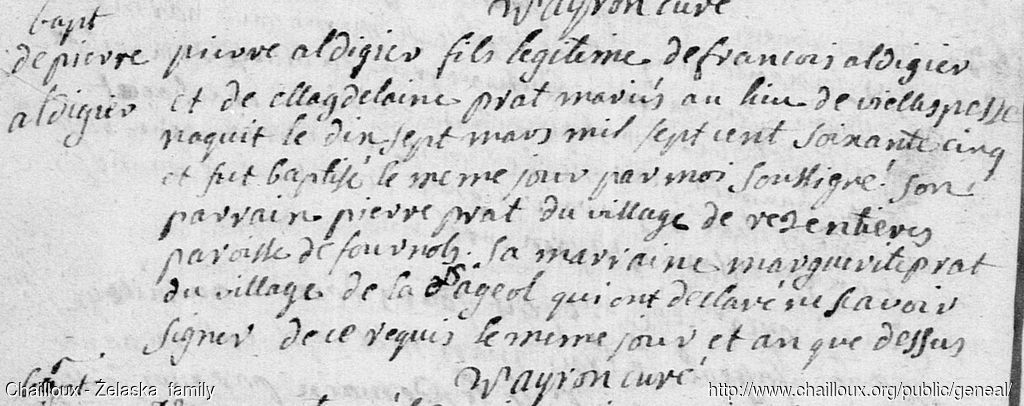 Wayron curé
bapt
de pierre
aldigier
pierre aldigier fils legitime de francois aldigier
et de Magdelaine prat mariés au lieu de viellespesse
naquit le dix sept mars mil sept cent soixante cinq
et fut baptisé le meme jour par moi soussigné. son
parrain pierre prat du village de rezentieres
paroisse de fournols. sa marraine marguerite prat
du village de la Bageol qui ont declaré ne scavoir
signer de ce requis le meme jour et an que dessus
Wayron curé
Chailloux - Żelaska family
http://www.chailloux.org/public/geneal/